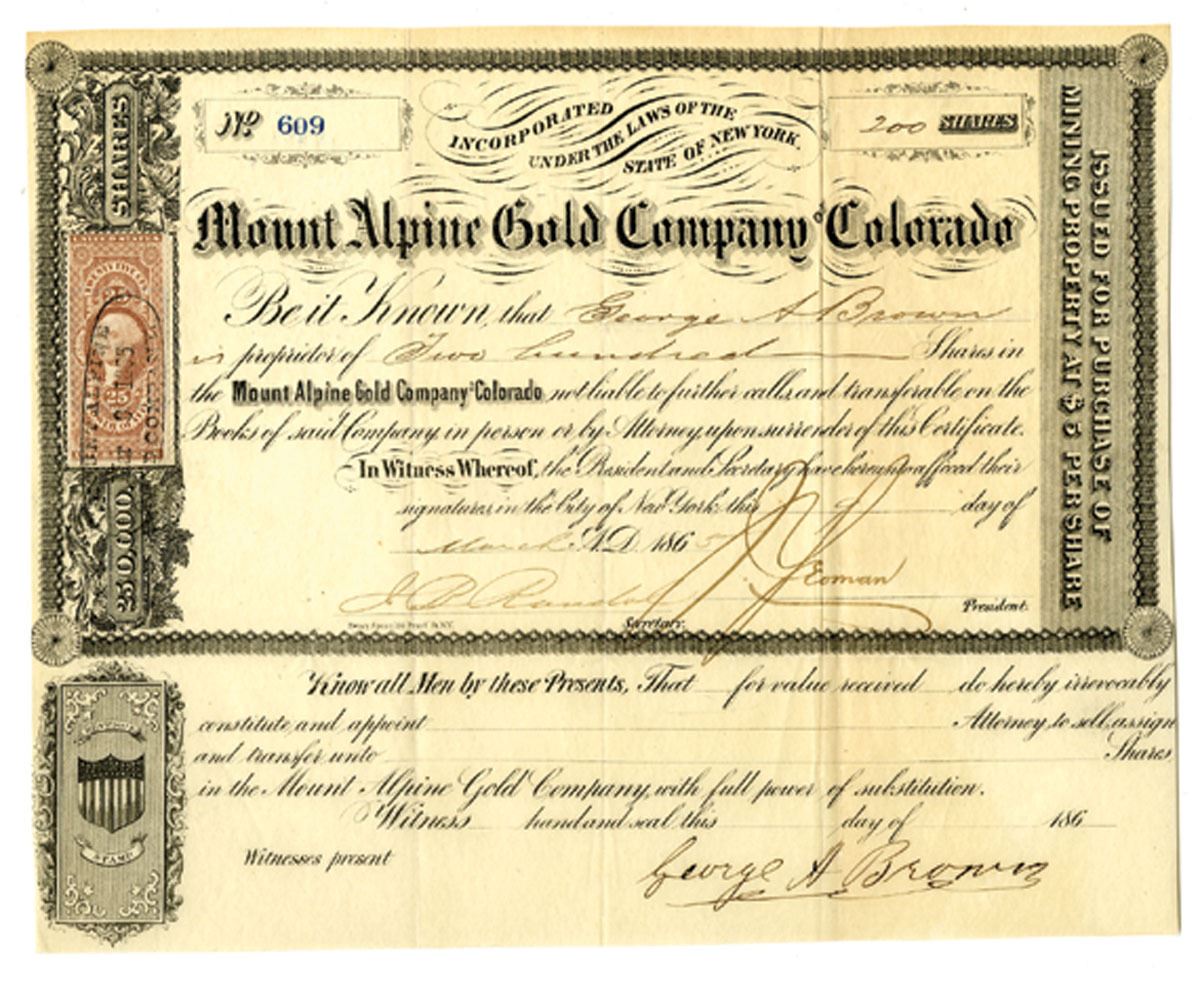 Nº 609
INCORPORATED
UNDER THE LAWS OF THE
STATE OF NEW YORK.
200 SHARES
Mount Alpine Gold Company of Colorado
Be it Known, that George A Brown
is proprietor of Two hundred Shares in
the Mount Alpine Gold Company of Colorado, not liable to further calls, and transferable on the
Books of said Company, in person or by Attorney, upon surrender of this Certificate.
In Witness Whereof, the President and Secretary have hereunto affixed their
signatures, in the City of New York, this day of
March A.D. 1865
J. Yeoman
President.
Secretary.
SHARES
25
250,000.
ISSUED FOR PURCHASE OF
MINING PROPERTY AT $5 PER SHARE
Know all Men by these Presents, That for value received do hereby irrevocably
constitute and appoint Attorney, to sell, assign
and transfer unto Shares
in the Mount Alpine Gold Company, with full power of substitution.
Witness hand and seal this day of 186
Witnesses present
George A Brown
STAMP